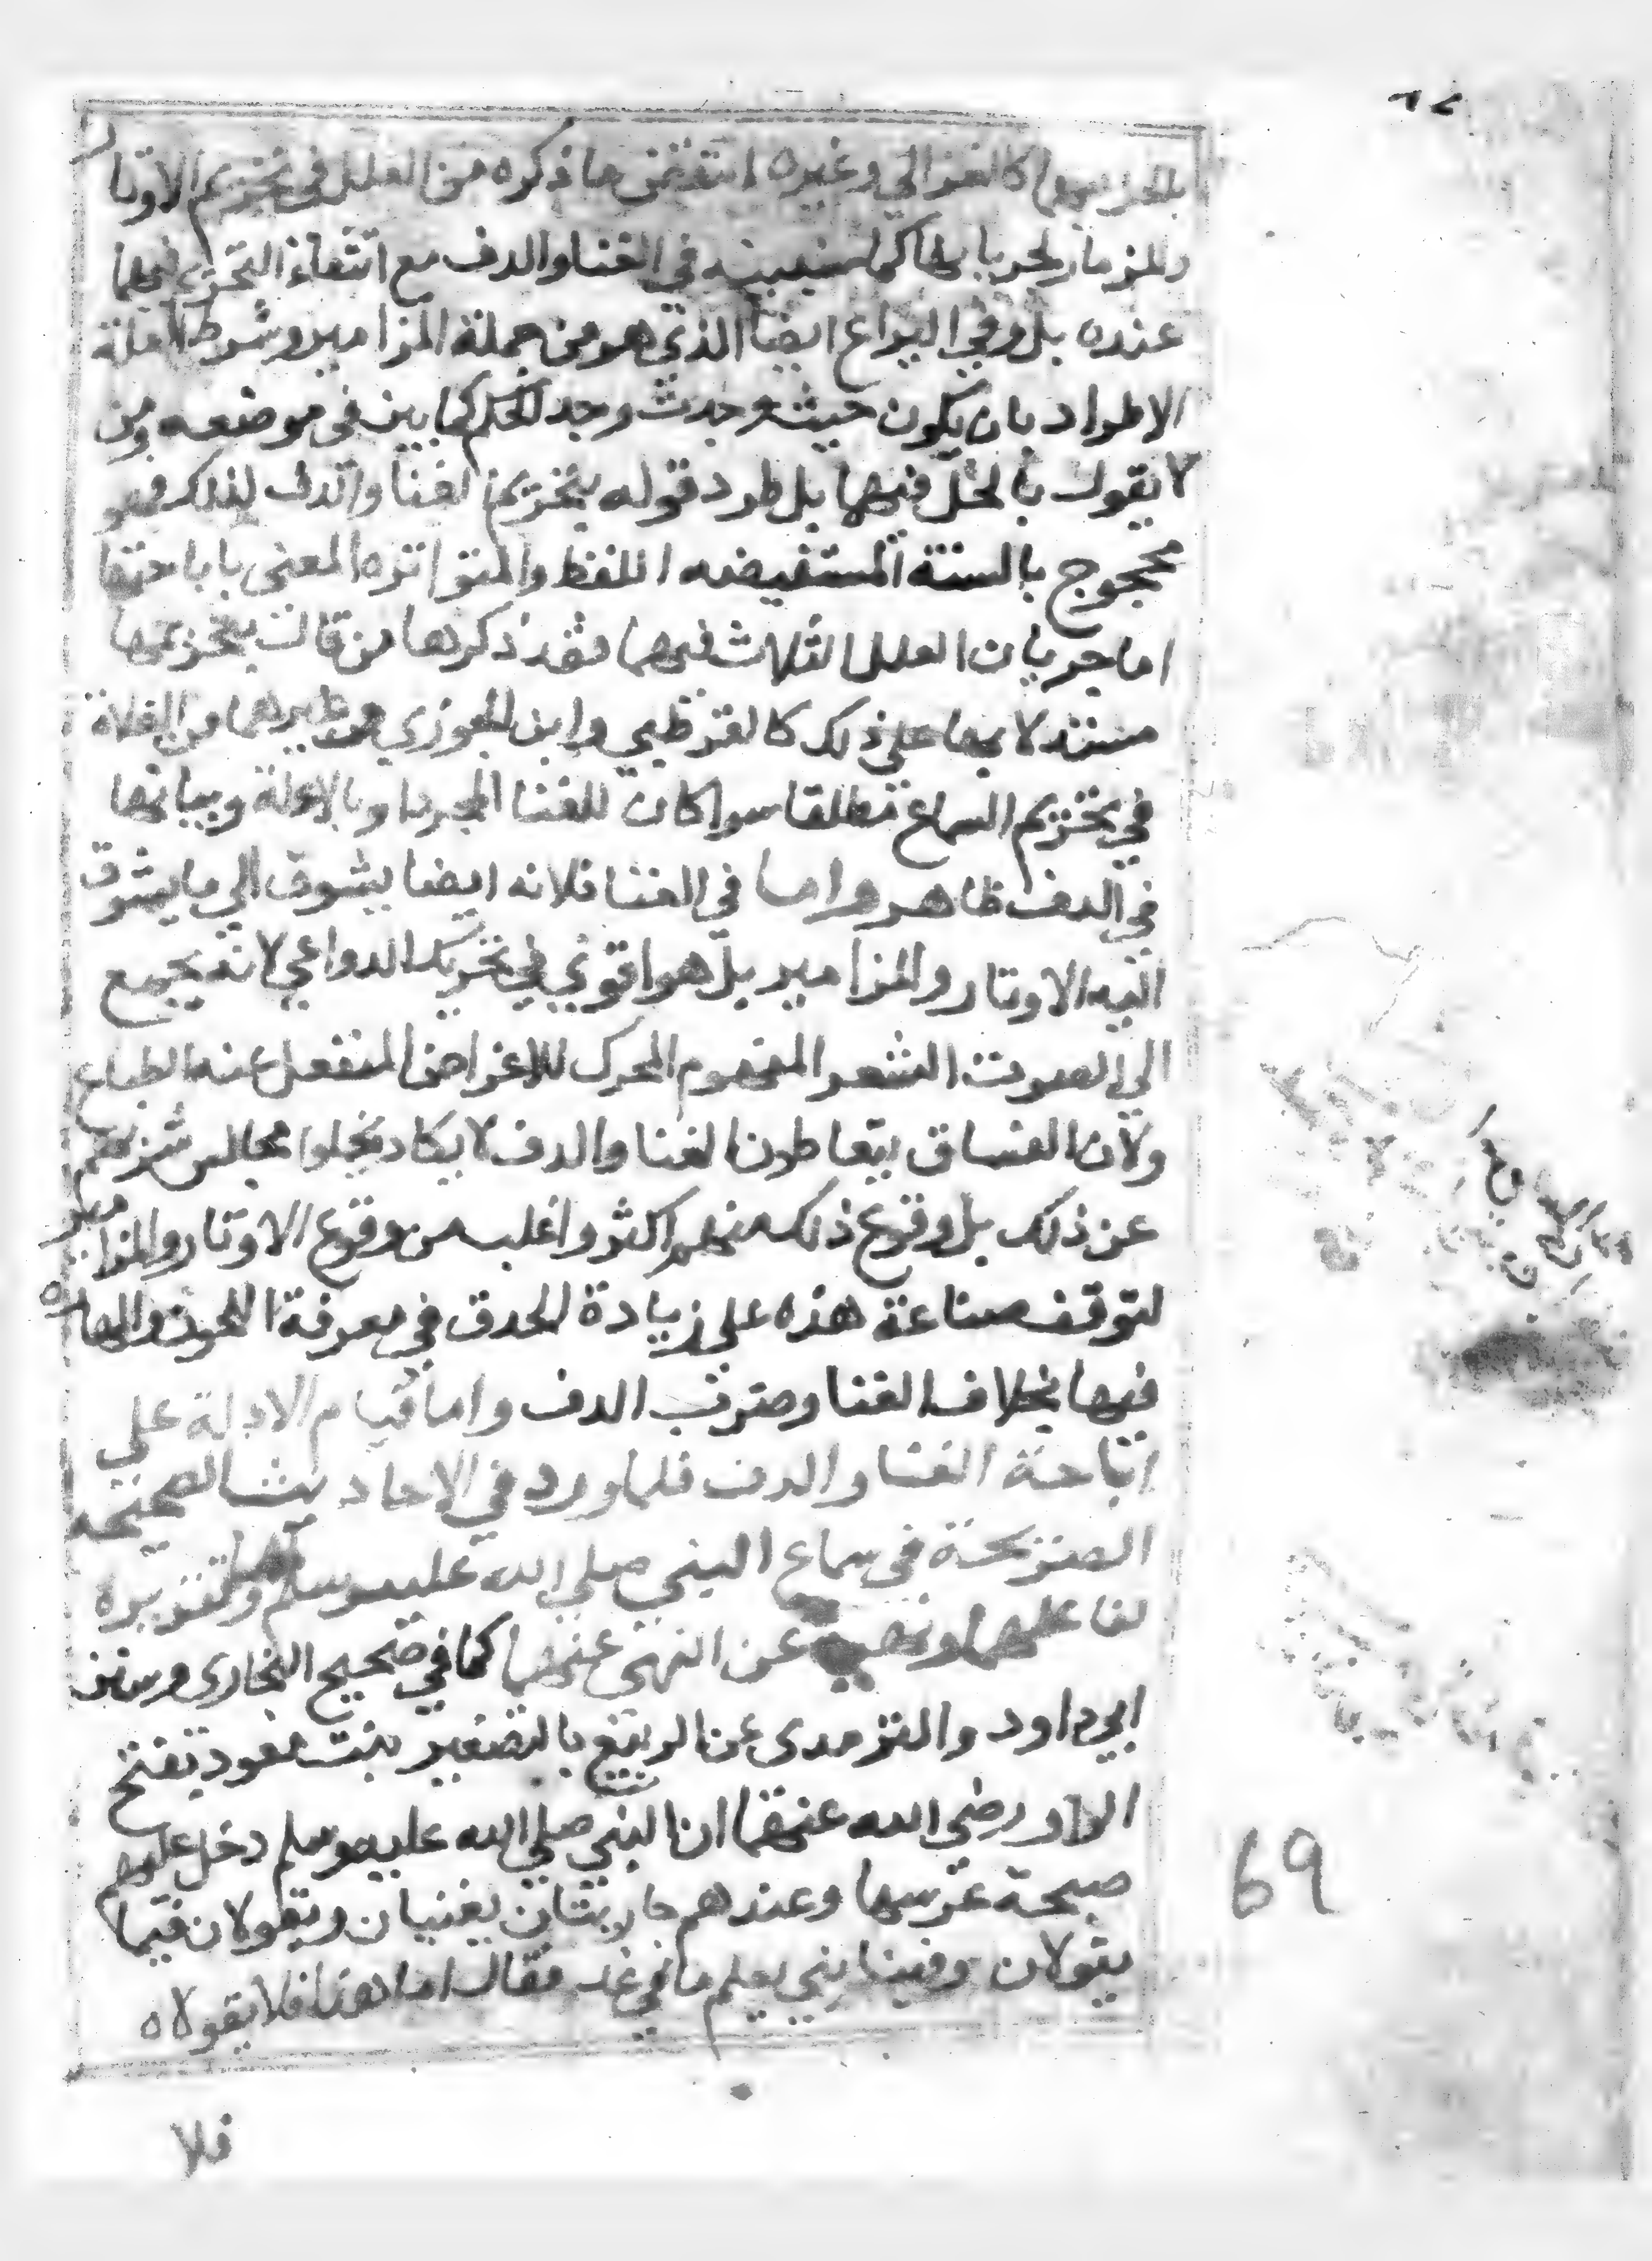 بالحل فيهما كالغزالي وغيره انتقض ما ذكره من العلل في تحريم الاوتار
والمزمار لجريانها كما سنبينه في الغنا والدف مع انتفاء التحريم فيهما
عنده بل وفي اليراع ايضا الذي هو من جملة المزامير وشرط العلة
الاطراد بان يكون حيث وجدت وجد الحكم كما بين في موضعه ومن
لا يقول بالحل فيهما بل طرد قوله بتحريم الغنا والدف لذلك فهو
محجوج بالسنة المستفيضه اللفظ والمتواتره المعنى باباحتها
اما جريان العلل الثلاث فيهما فقد ذكرها من قال بتحريمها
مستدلا بها على ذلك كالقرطبي وابن الجوزي وغيرهما من الغلاة
في تحريم السماع مطلقا سوا كان للغنا المجرد او بالالة وبيانها
في الدف ظاهر واما في الغنا فلانه ايضا يشوق الي ما يشوق
اليه الاوتار والمزامير بل هو اقوي في تحريك الدواعي لانه يجمع
الي الصوت الشعر المفهوم المحرك للاغراض المنفعل عنه الطباع
ولان الفساق يتعاطون الغنا والدف لا يكاد تخلوا مجالس شربهم
عن ذلك بل وقوع ذلك منهم اكثر واغلب من وقوع الاوتار والمزامير
لتوقف صناعة هذه على زيادة الحدق في معرفة اللحون والمهاره
فيها بخلاف الغنا وضرب الدف واما قيام الادلة علي
اباحة الغنا والدف فلما ورد في الاحاديث الصحيحه
الصريحة في سماع النبي صلي الله عليه وسلم لهما وتقريره
لنا عليهما ونهيه عن النهي عنهما كما في صحيح البخاري وسنن
ابي داود والترمدى عن الربيع بالتصغير بنت معود بفتح
الواو رضي الله عنهما ان النبي صلي الله عليه وسلم دخل عليهم
صبيحة عرسها وعندهم جاريتان يغنيان ويقولان فيما
يقولان وفينا نبي يعلم ما في غد فقال اما هذا فلا يقولاه
فلا
69